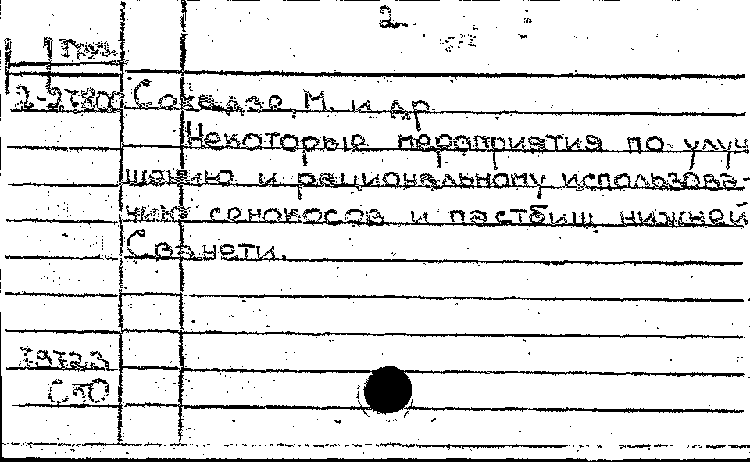 2
Груз.
Сохадзе, М. и др
Некоторые мероприятия по улуч
шению и рациональному использова-
нию сенокосов и пастбищ нижней
Сванети.